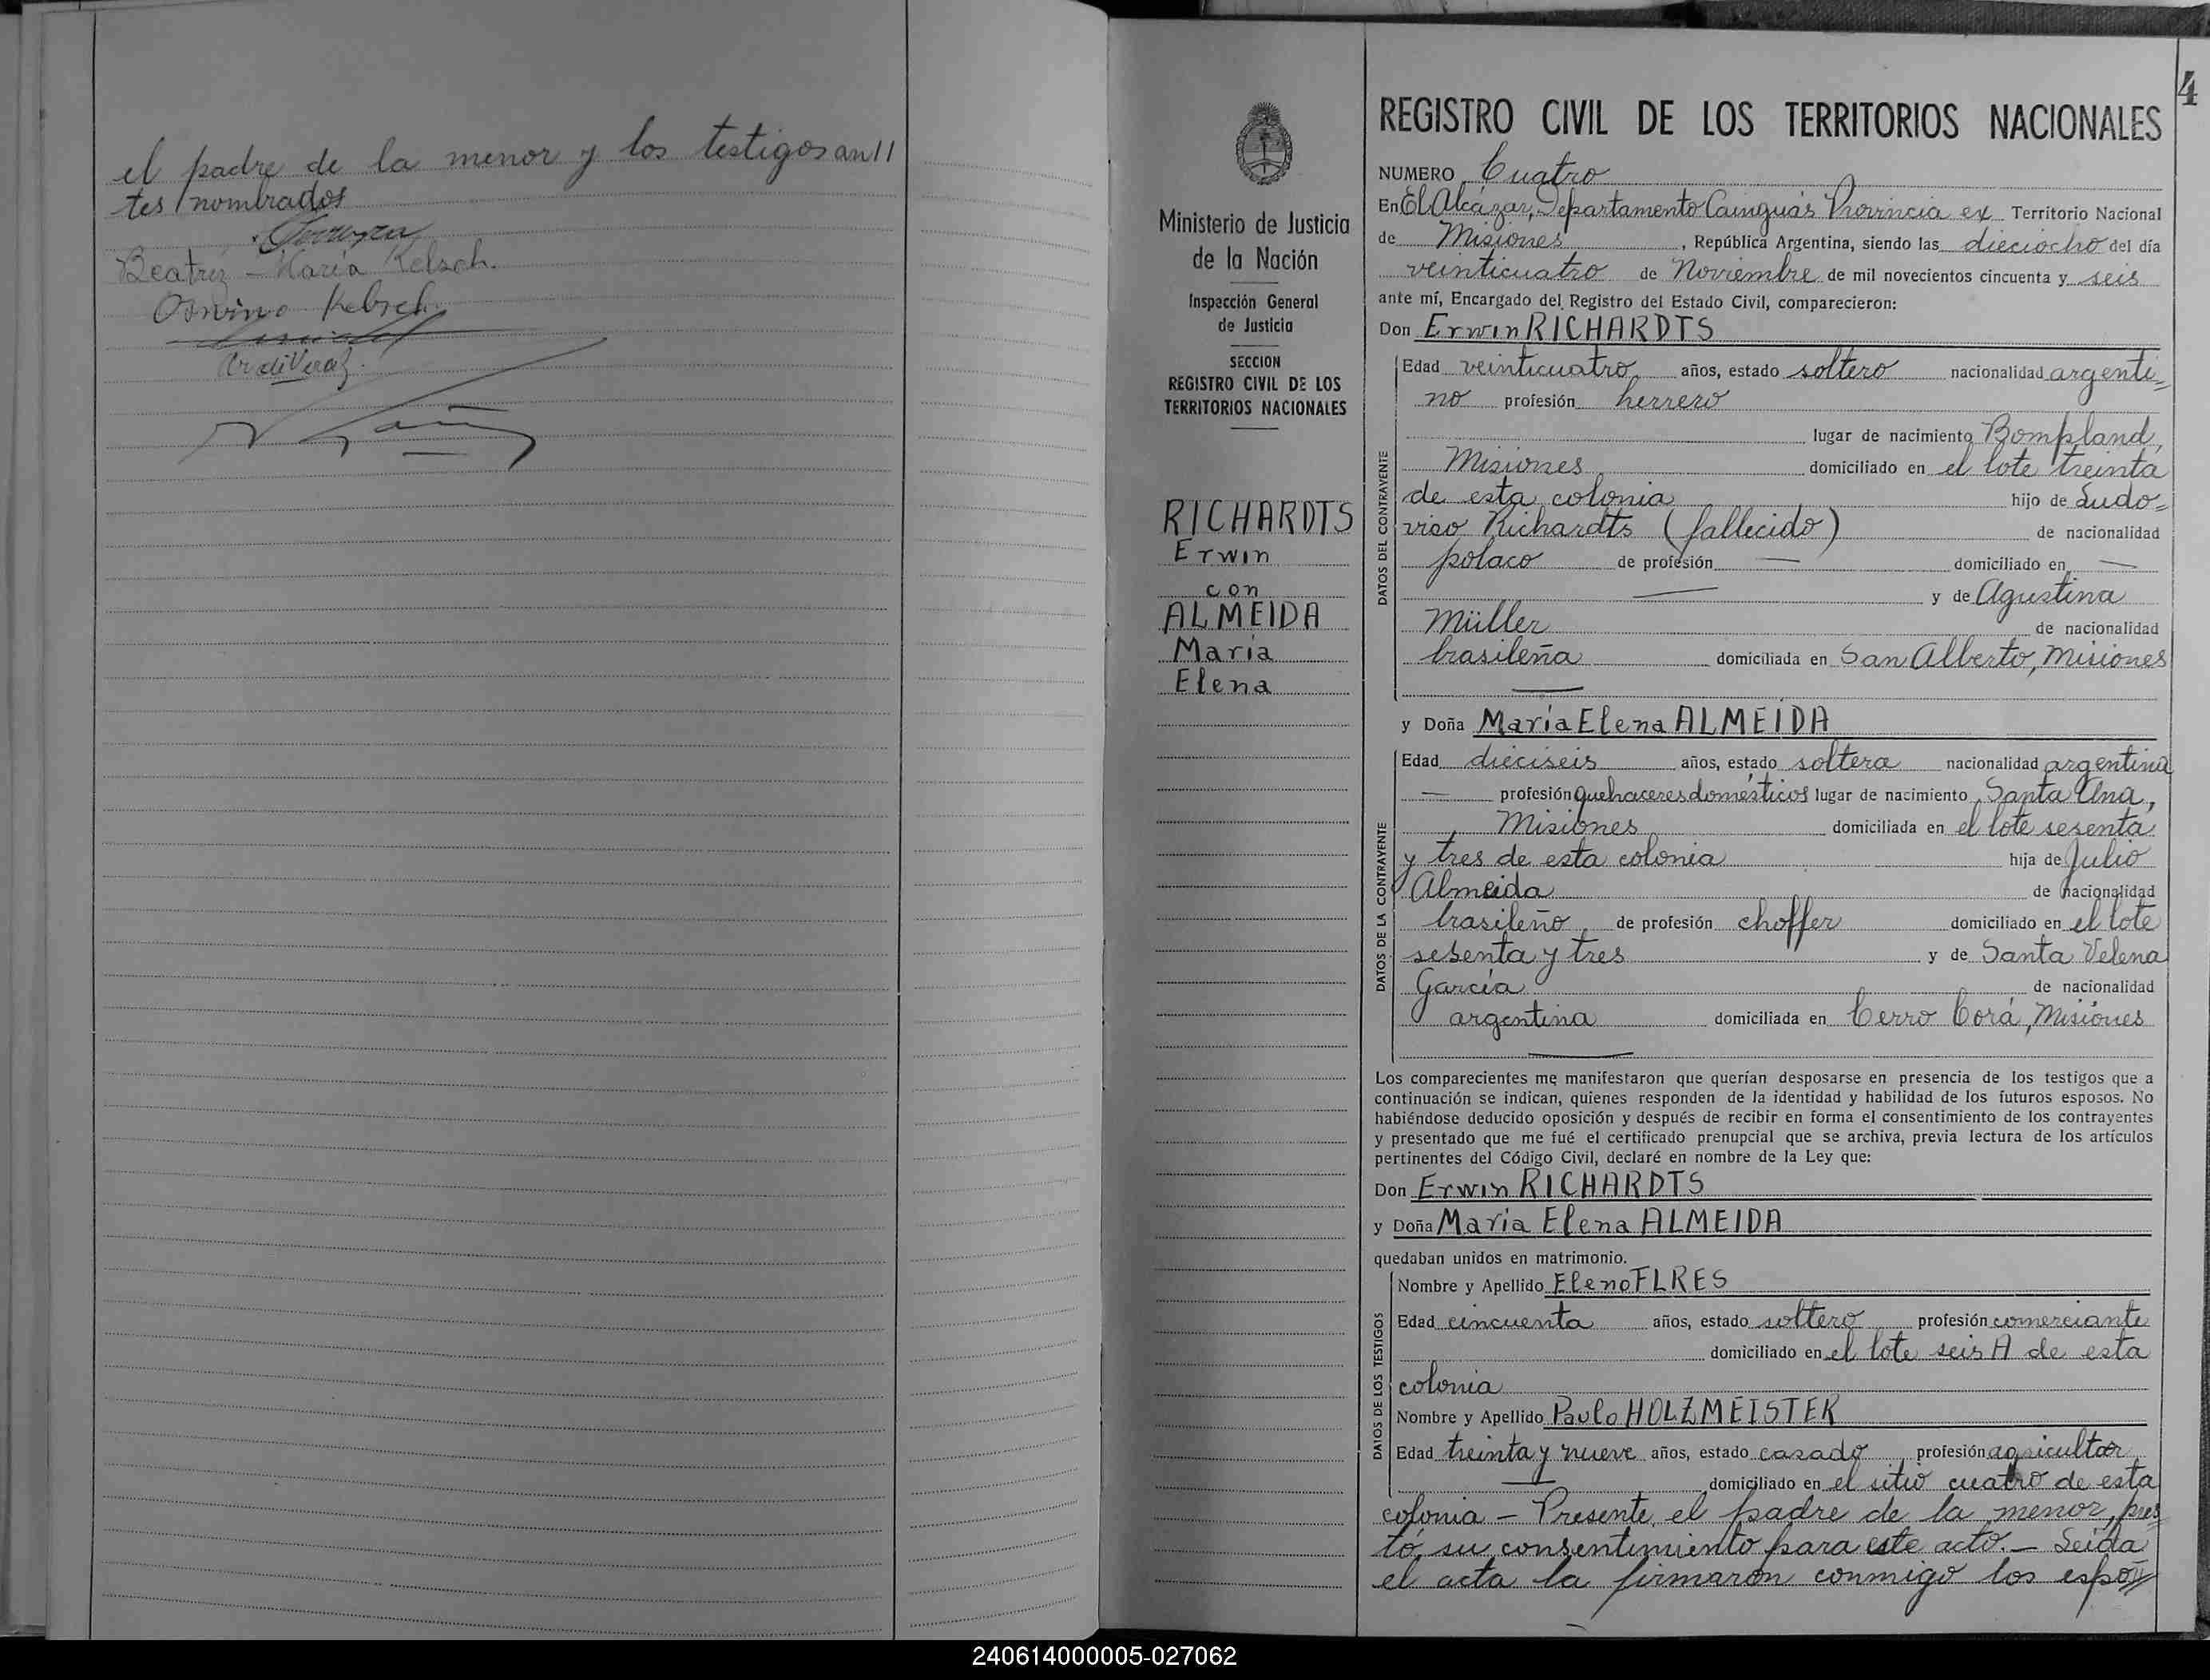 el padre de la menor y los testigos an//
tes nombrados
Beatriz María Kelsch.
Osvino Kelsch
4
REGISTRO CIVIL DE LOS TERRITORIOS NACIONALES
NUMERO Cuatro
En El Alcázar, Departamento Cainguás Provincia ex Territorio Nacional
de Misiones, República Argentina, siendo las dieciocho del día
veinticuatro de Noviembre de mil novecientos cincuenta y seis
ante mí, Encargado del Registro del Estado Civil, comparecieron:
Don Erwin RICHARDTS
Edad veinticuatro años, estado soltero nacionalidad argenti=
no profesión herrero
lugar de nacimiento Bompland,
Misiones domiciliado en el lote treinta
de esta colonia hijo de Ludo=
vico Richardts (fallecido) de nacionalidad
polaco de profesión — domiciliado en —
— y de Agustina
Müller de nacionalidad
brasileña domiciliada en San Alberto, Misiones
y Doña María Elena ALMEIDA
Edad dieciseis años, estado soltera nacionalidad argentina
— profesión quehaceres domésticos lugar de nacimiento Santa Ana,
Misiones domiciliada en el lote sesenta
y tres de esta colonia hija de Julio
Almeida de nacionalidad
brasileño de profesión choffer domiciliado en el lote
sesenta y tres y de Santa Velena
García de nacionalidad
argentina domiciliada en Cerro Corá, Misiones
Los comparecientes me manifestaron que querían desposarse en presencia de los testigos que a
continuación se indican, quienes responden de la identidad y habilidad de los futuros esposos. No
habiéndose deducido oposición y después de recibir en forma el consentimiento de los contrayentes
y presentado que me fué el certificado prenupcial que se archiva, previa lectura de los artículos
pertinentes del Código Civil, declaré en nombre de la Ley que:
Don Erwin RICHARDTS
y Doña María Elena ALMEIDA
quedaban unidos en matrimonio.
Nombre y Apellido Eleno FLRES
Edad cincuenta años, estado soltero profesión comerciante
domiciliado en el lote seis A de esta
colonia
Nombre y Apellido Paulo HOLZMEISTER
Edad treinta y nueve años, estado casado profesión agricultor
— domiciliado en el sitio cuatro de esta
colonia — Presente el padre de la menor, pres=
tó su consentimiento para este acto. — Leída
el acta la firmaron conmigo los espo//
DATOS DEL CONTRAYENTE
DATOS DE LA CONTRAYENTE
DATOS DE LOS TESTIGOS
Ministerio de Justicia
de la Nación
Inspección General
de Justicia
SECCION
REGISTRO CIVIL DE LOS
TERRITORIOS NACIONALES
RICHARDTS
Erwin
con
ALMEIDA
María
Elena
240614000005-027062